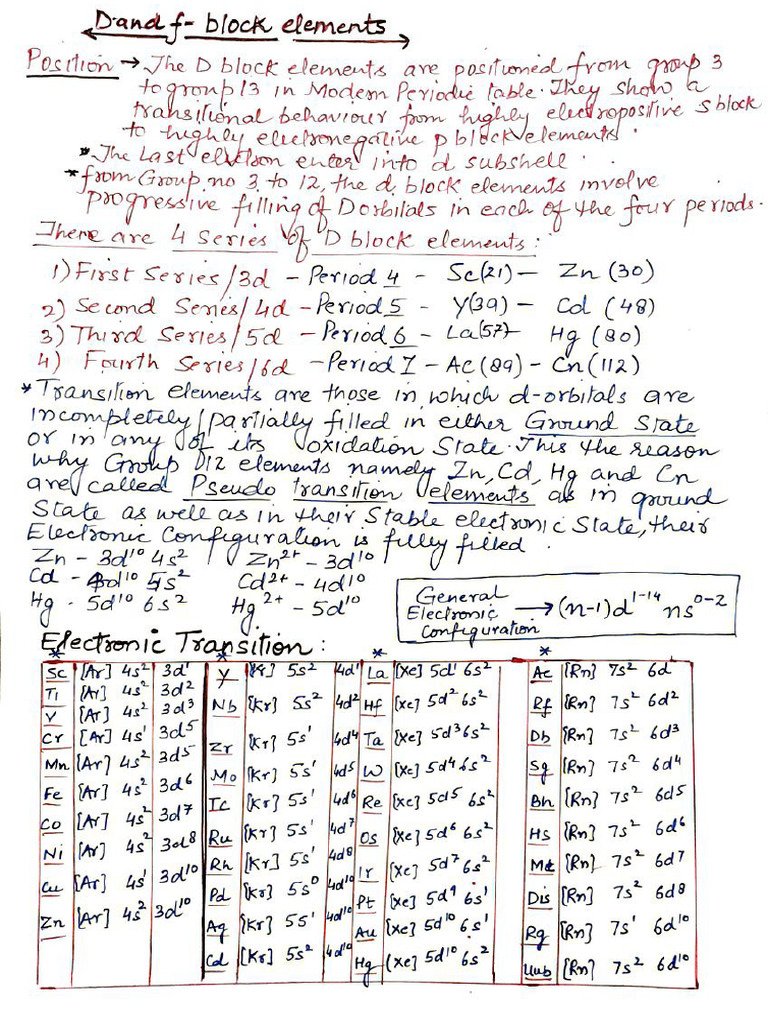 D and f- block elements
Position → The D block elements are positioned from group 3
to group 13 in Modern Periodic table. They show a
transitional behaviour from highly electropositive S block
to highly electronegative p block elements.
* The Last elvetson enter into d subshell.
* from Group no 3 to 12, the d block elements involve
progressive filling of D orbitals in each of the four periods.
There are 4 Series of D block elements:
1) First Series/3d - Period 4 - Sc(21) - Zn (30)
2) Second Series/4d - Period 5 - Y(39) - Cd (48)
3) Third Series/5d - Period 6 - La(57) Hg (80)
4) Fourth Series/6d - Period 7 - AC(89) - Cn(112)
* Transition elements are those in which d-orbitals are
incompletely/partially filled in either Ground State
or in any of its oxidation State. This the reason
why Group 12 elements namely Zn, Cd, Hg and Cn
are called Pseudo transition elements as in ground
State as well as in their Stable electronic State, their
Electronic Configuration is fully filled.
Zn - 3d¹⁰ 4s² Zn²⁺ - 3d¹⁰
Cd - 4d¹⁰ 5s² Cd²⁺ - 4d¹⁰
Hg - 5d¹⁰ 6s² Hg²⁺ - 5d¹⁰
General
Electronic → (n-1)d¹⁻¹⁴ ns⁰⁻²
Configuration
Electronic Transition:
* * * *
Sc [Ar] 4s² 3d¹ Y [Kr] 5s² 4d¹ La [Xe] 5d¹ 6s² Ac [Rn] 7s² 6d¹
Ti [Ar] 4s² 3d² Nb [Kr] 5s² 4d² Hf [Xe] 5d² 6s² Rf [Rn] 7s² 6d²
V [Ar] 4s² 3d³ Zr [Kr] 5s¹ 4d⁴ Ta [Xe] 5d³ 6s² Db [Rn] 7s² 6d³
Cr [Ar] 4s¹ 3d⁵ Mo [Kr] 5s¹ 4d⁵ W [Xe] 5d⁴ 6s² Sg [Rn] 7s² 6d⁴
Mn [Ar] 4s² 3d⁵ Tc [Kr] 5s¹ 4d⁶ Re [Xe] 5d⁵ 6s² Bh [Rn] 7s² 6d⁵
Fe [Ar] 4s² 3d⁶ Ru [Kr] 5s¹ 4d⁷ Os [Xe] 5d⁶ 6s² Hs [Rn] 7s² 6d⁶
Co [Ar] 4s² 3d⁷ Rh [Kr] 5s¹ 4d⁸ Ir [Xe] 5d⁷ 6s² Mt [Rn] 7s² 6d⁷
Ni [Ar] 4s² 3d⁸ Pd [Kr] 5s⁰ 4d¹⁰ Pt [Xe] 5d⁹ 6s¹ Dis [Rn] 7s² 6d⁸
Cu [Ar] 4s¹ 3d¹⁰ Ag [Kr] 5s¹ 4d¹⁰ Au [Xe] 5d¹⁰ 6s¹ Rg [Rn] 7s¹ 6d¹⁰
Zn [Ar] 4s² 3d¹⁰ Cd [Kr] 5s² 4d¹⁰ Hg [Xe] 5d¹⁰ 6s² Uub [Rn] 7s² 6d¹⁰